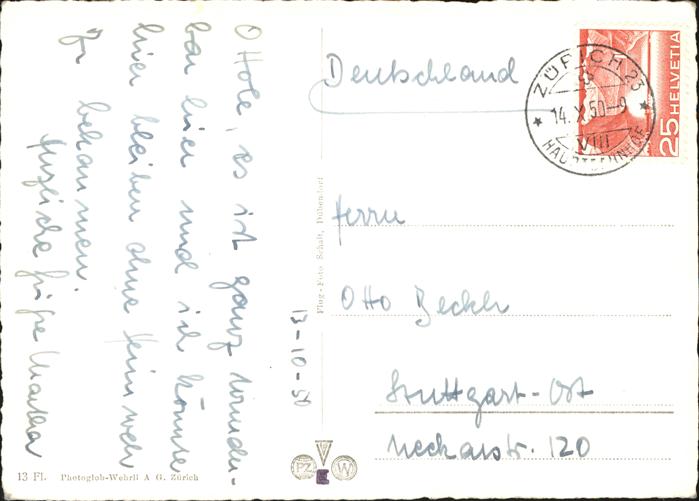 O Hole, es ist ganz wunder-
bar hier und ich könnte
hier bleiben ohne Heimweh
zu bekommen.
Herzliche Grüße Martha
13-10-50
Flug-Foto Schalt, Dübendorf
13 Fl. Photoglob-Wehrli A G. Zürich
PZ
W
E
Deutschland
ZÜRICH 23
14.X.50-9
VIII
HAUPTBAHNHOF
25 HELVETIA
Herrn
Otto
Stuttgart-Ost
Neckarstr. 120